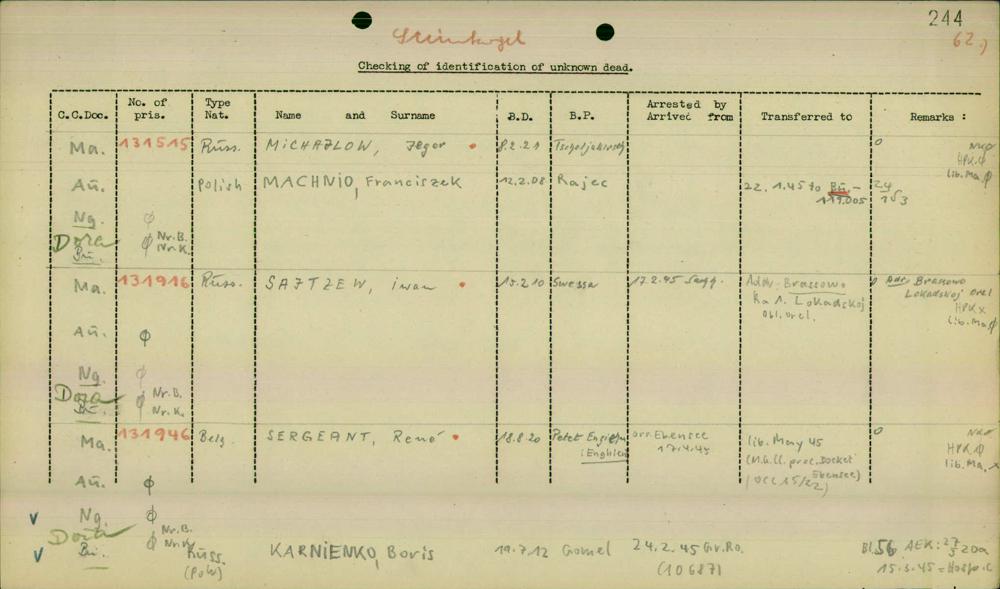 244
62.)
Steinkogel
Checking of identification of unknown dead.
C.C.Doc. No. of pris. Type Nat. Name and Surname B.D. B.P. Arrested by Arrived from Transferred to Remarks :
Ma. 131515 Russ. MICHAJLOW, Jegor 8.2.21 o
HPK.Ø
lib.Ma.Ø
Au. Polish MACHNIO, Franciszek 12.2.08 Rajec 22.1.45 to Bu.-
119.005
Ng. Ø
Dora Ø Nr.B.
Bu. Nr.K.
Ma. 131916 Russ. SAJTZEW, iwan 15.2.10 Swessa 17.2.45 Adw. Brassowo o Adr. Brassowo
Ra 1. Lokadskoj Lokadskoj orel
Obl. orel. HPK x
lib.Ma.Ø
Au. Ø
Ng. Ø
Dora Ø Nr.B.
Bu. Nr.K.
Ma. 131946 Belg. SERGEANT, René 18.8.20 Petit Engi arr. Ebensee lib. May 45 o
(Enghien 17.4.45 (M.G.U. prov. Docket HPK.Ø
Ebensee) lib.Ma.x
OCC 15/22)
Au. Ø
v Ng. Ø
Dora Ø Nr.B.
v Bu. Nr.K.
Russ. KARNIENKO, Boris 19.7.12 Gomel 24.2.45 Gr.Ro. Bl.56 AEK: 27/3 20a
(PoW) (10687) 15.3.45 = Hosp.